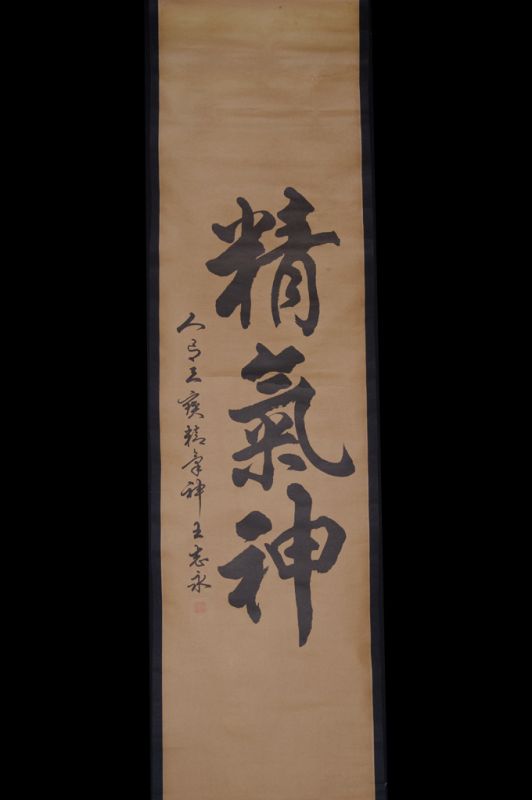 精氣神
人有三寶精氣神王志永